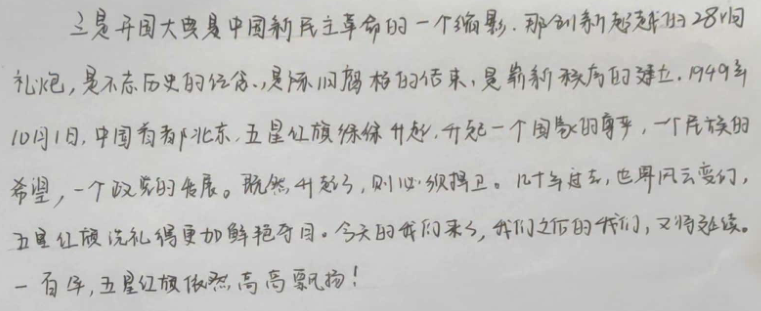 这是开国大典是中国新民主革命的一个缩影。那创新起越的28响
礼炮,是不忘历史的纪念,是陈旧腐朽的结束,是崭新秩序的建立。1949年
10月1日,中国首都北京,五星红旗徐徐升起,升起一个国家的尊严,一个民族的
希望,一个政党的发展。既然升起了,则必须捍卫。几十年过去,世界风云变幻,
五星红旗洗礼得更加鲜艳夺目。今天的我们来了,我们之后的我们,又将延续。
一百年,五星红旗依然高高飘扬!